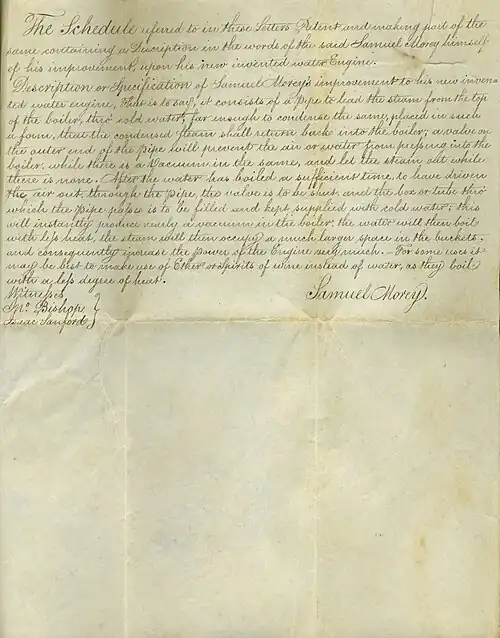 The Schedule referred to in these Letters Patent and making part of the
same containing a Description in the words of the said Samuel Morey himself
of his improvement, upon his new invented water Engine.
Description or Specification of Samuel Morey's improvement to his new inven
ted water engine, That is to say, it consists of a Pipe to lead the steam from the top
of the boiler, thro' cold water, far enough to condense the same, placed in such
a form, that the condensed steam shall return back into the boiler; a valve on
the outer end of the pipe will prevent the air or water from pressing into the
boiler, while there is a Vacuum in the same, and let the steam out while
there is none. After the water has boiled a sufficient time, to have driven
the air out, through the Pipe, the valve is to be shut, and the box or tube thro'
which the Pipe passes is to be filled and kept supplied with cold water; this
will instantly produce nearly a vacuum in the boiler, the water will then boil
with less heat, the steam will then occupy a much larger space in the buckets,
and consequently increase the power of the Engine very much. For some uses it
may be best to make use of Ether or Spirits of wine instead of water, as they boil
with a less degree of heat.
Samuel Morey.
Witnesses
Jno. Bishop
Isaac Sanford